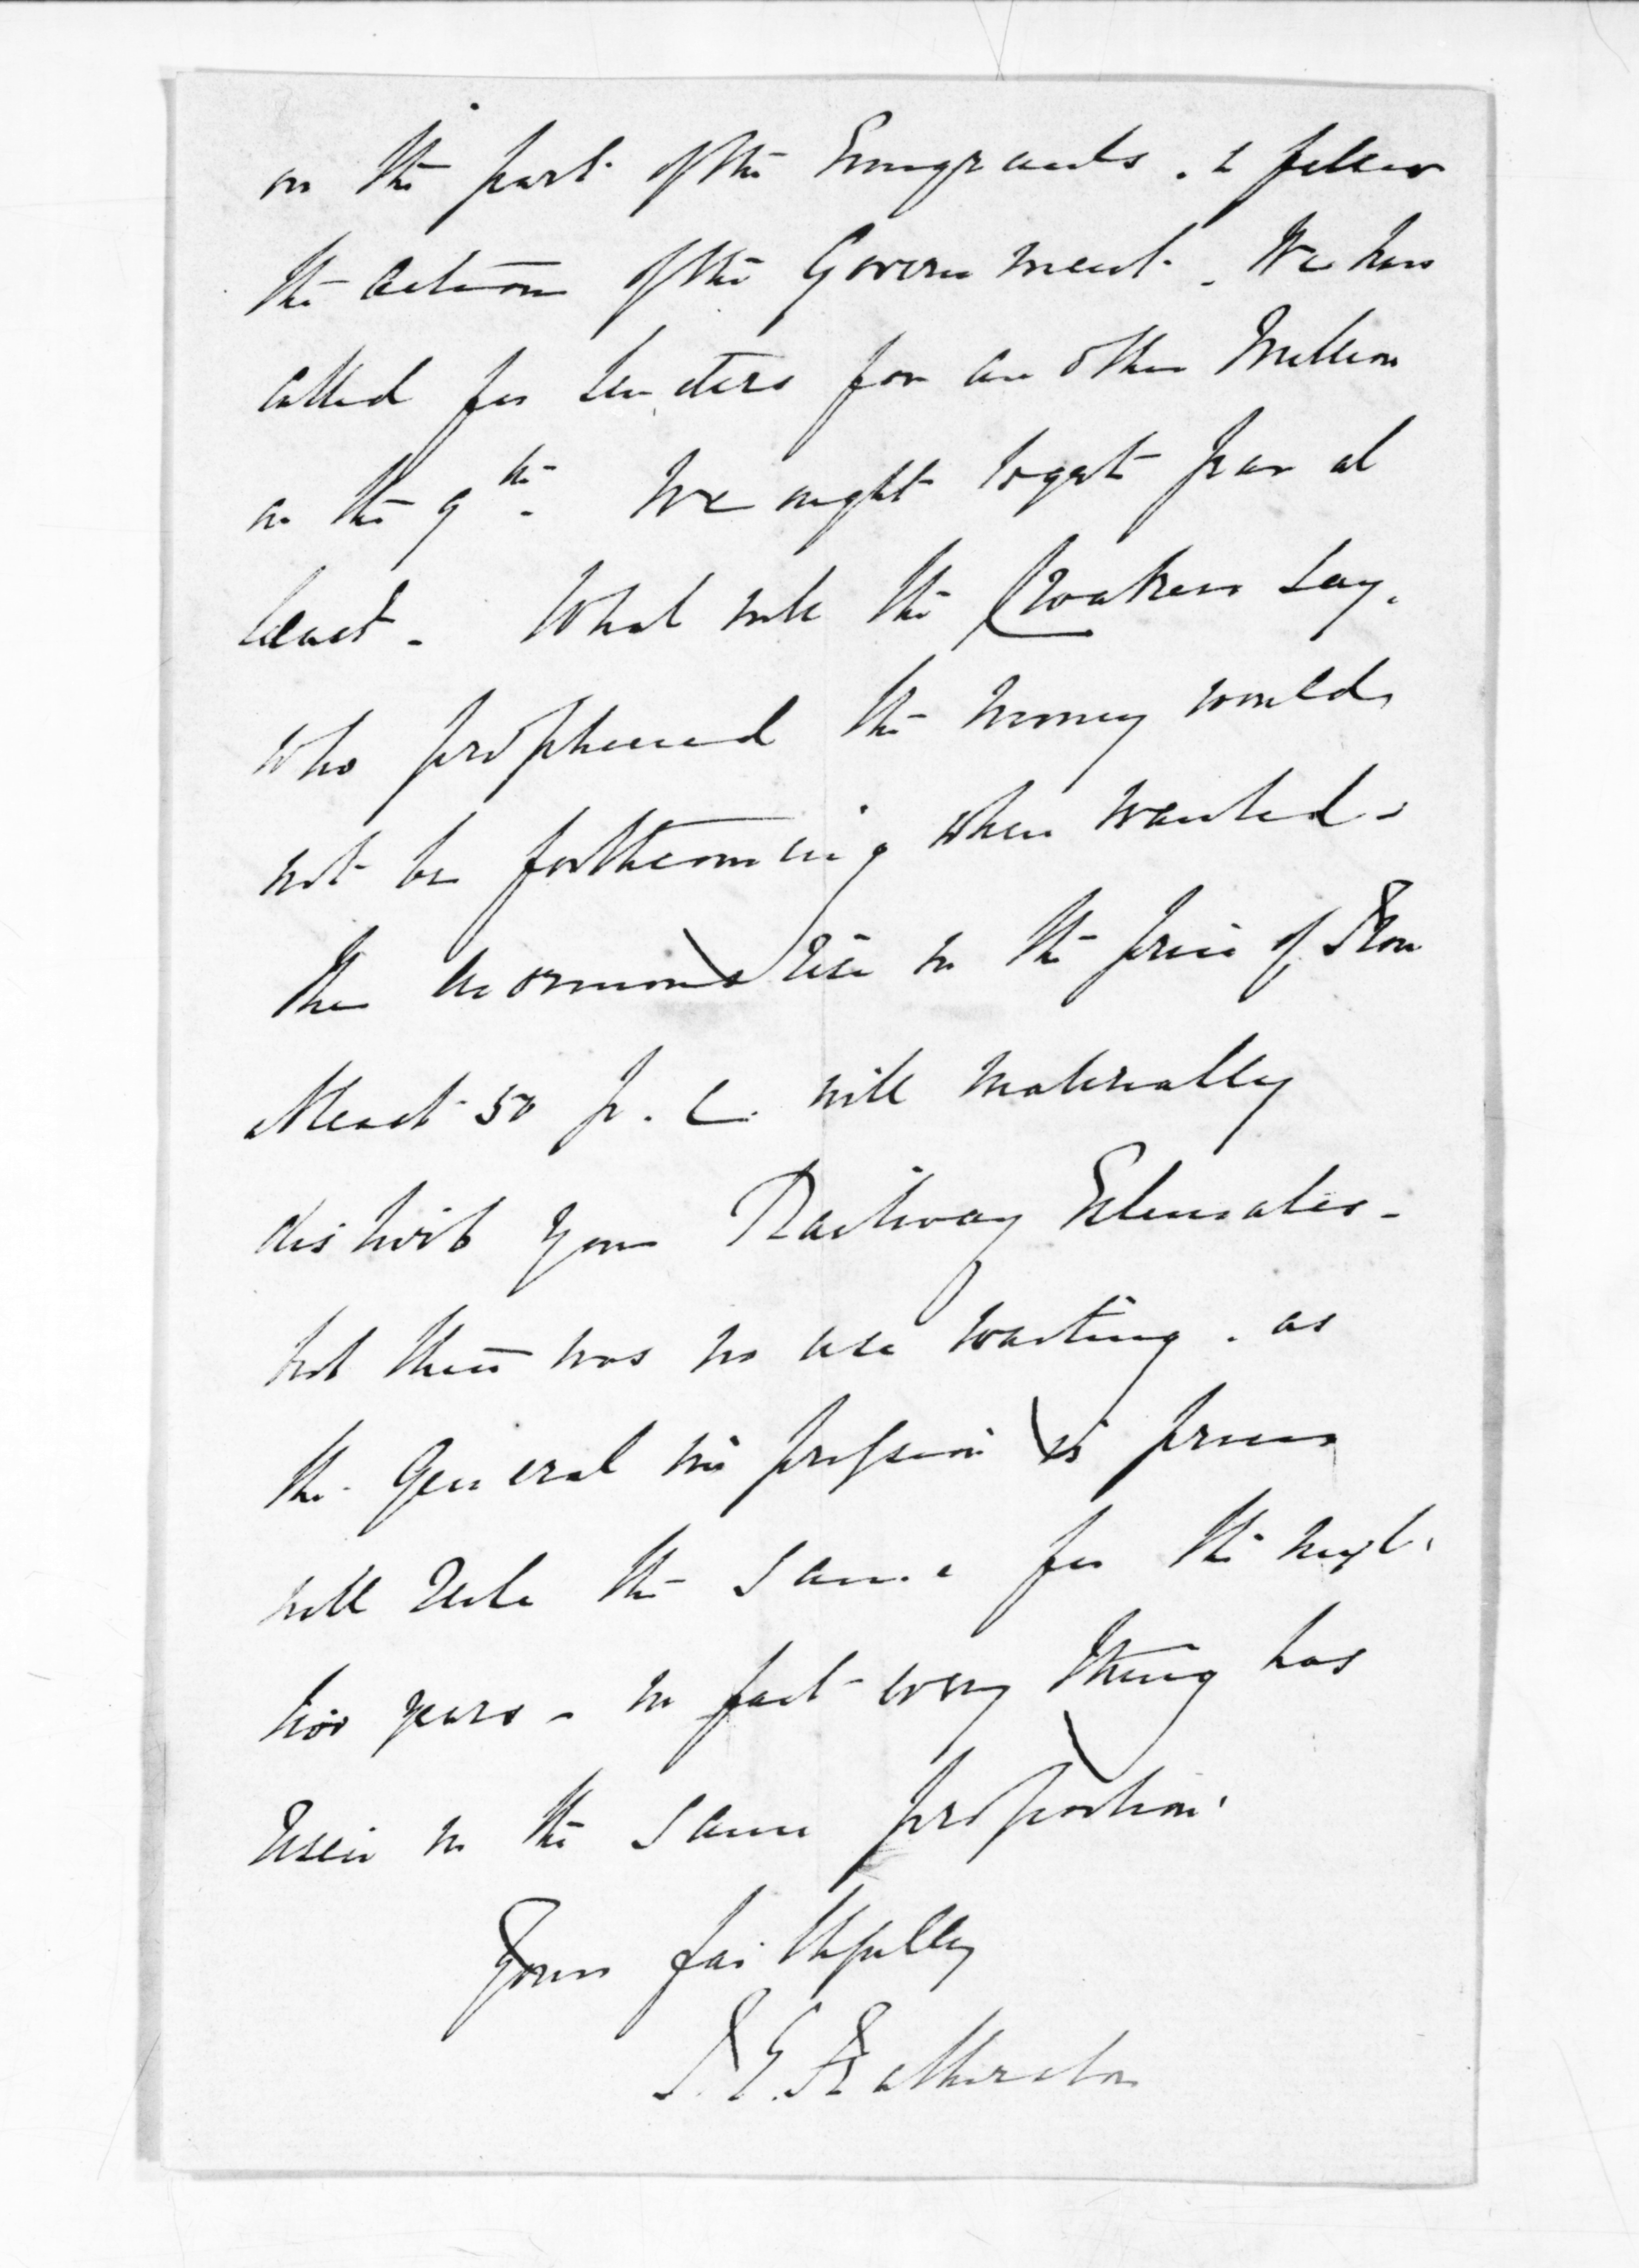 on the part of the Emigrants. & follow
the action of the Government. We have
called for tenders for another Million
on the 9th. We ought to get par at
least. What will the Croakers say,
who prophecied the money would
not be forthcoming when wanted.
The enormous rise in the price of Iron
at least 50 p. C. will materially
disturb your Railway Estimates.
but there was no use waiting. as
the General impression is prices
will rule the same for the next
two years. in fact every thing has
risen in the same proportion.
Yours faithfully
I. E. Featherston